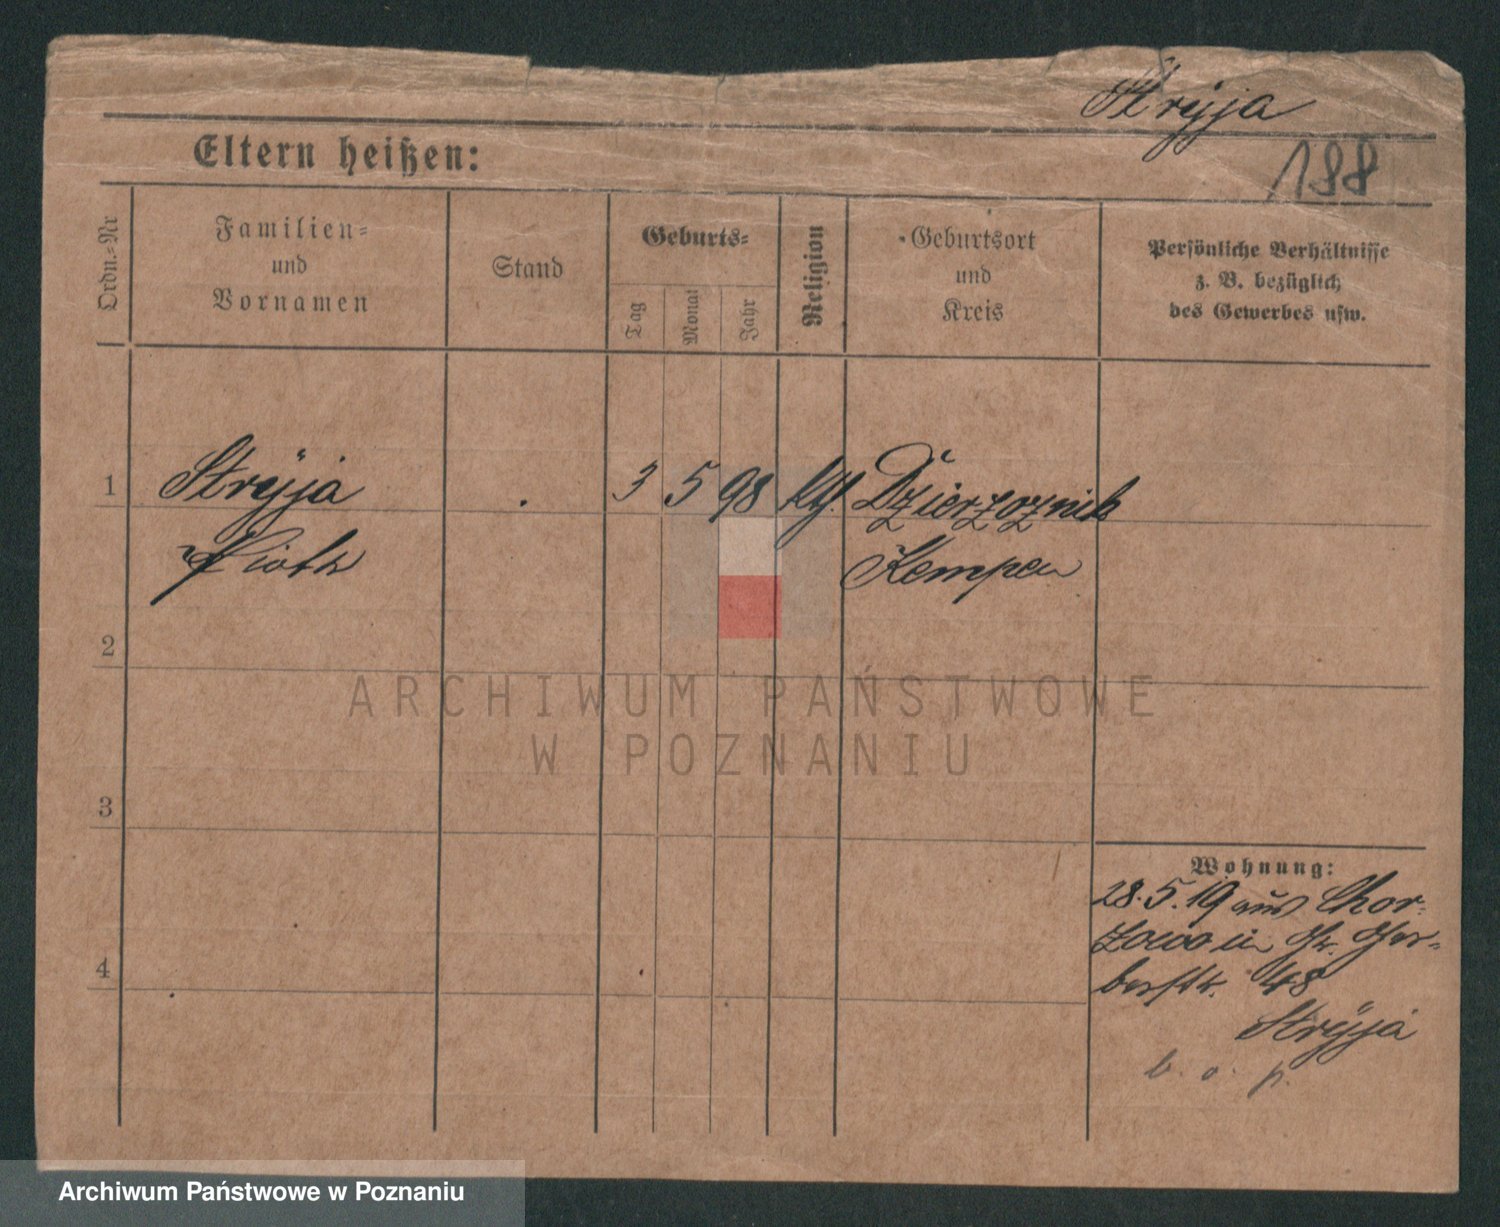 Stryja
188
Eltern heißen:
Ordn.-Nr
Familien-
und
Vornamen
Stand
Geburts-
Tag
Monat
Jahr
Religion
Geburtsort
und
Kreis
Persönliche Verhältnisse
z. B. bezüglich
des Gewerbes usw.
1
Stryja
3 5 98 ktl. Dzierzoznik
Piotr
Kempen
2
ARCHIWUM PAŃSTWOWE
W POZNANIU
3
Wohnung:
28.5.19 aus Chor-
zowo in Gr. Ger-
berstr. 48
4
Stryja
b. o. p.
Archiwum Państwowe w Poznaniu